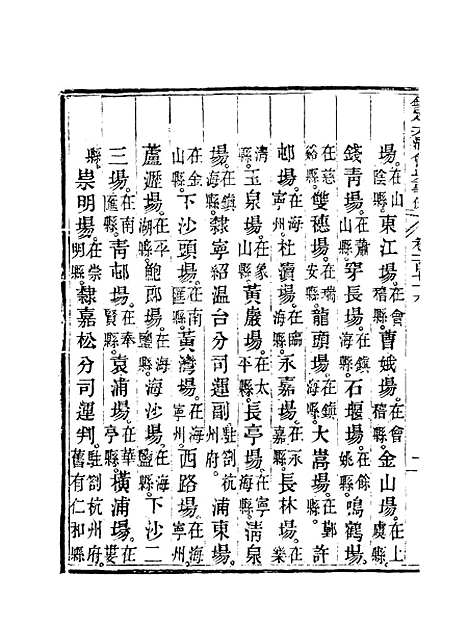 場。在山陰縣。東江場。在會稽縣。曹娥場。在會稽縣。金山場。在上虞縣。
錢青場。在蕭山縣。穿長場。在鎮海縣。石堰場。在餘姚縣。鳴鶴場。
在慈谿縣。雙穗場。在瑞安縣。龍頭場。在鎮海縣。大嵩場。在鄞縣。許
邨場。在海寧州。杜瀆場。在臨海縣。永嘉場。在永嘉縣。長林場。在樂
清縣。玉泉場。在象山縣。黃巖場。在太平縣。長亭場。在寧海縣。清泉
場。在鎮海縣。隸寧紹溫台分司運副。駐劄杭州府。浦東場。
在金山縣。下沙頭場。在南匯縣。黃灣場。在海寧州。西路場。在海寧州。
蘆瀝場。在平湖縣。鮑郎場。在海鹽縣。海沙場。在海鹽縣。下沙二
三場。在南匯縣。青邨場。在奉賢縣。袁浦場。在華亭縣。橫浦場。在婁
縣。崇明場。在崇明縣。隸嘉松分司運判。駐劄杭州府。舊有仁和縣